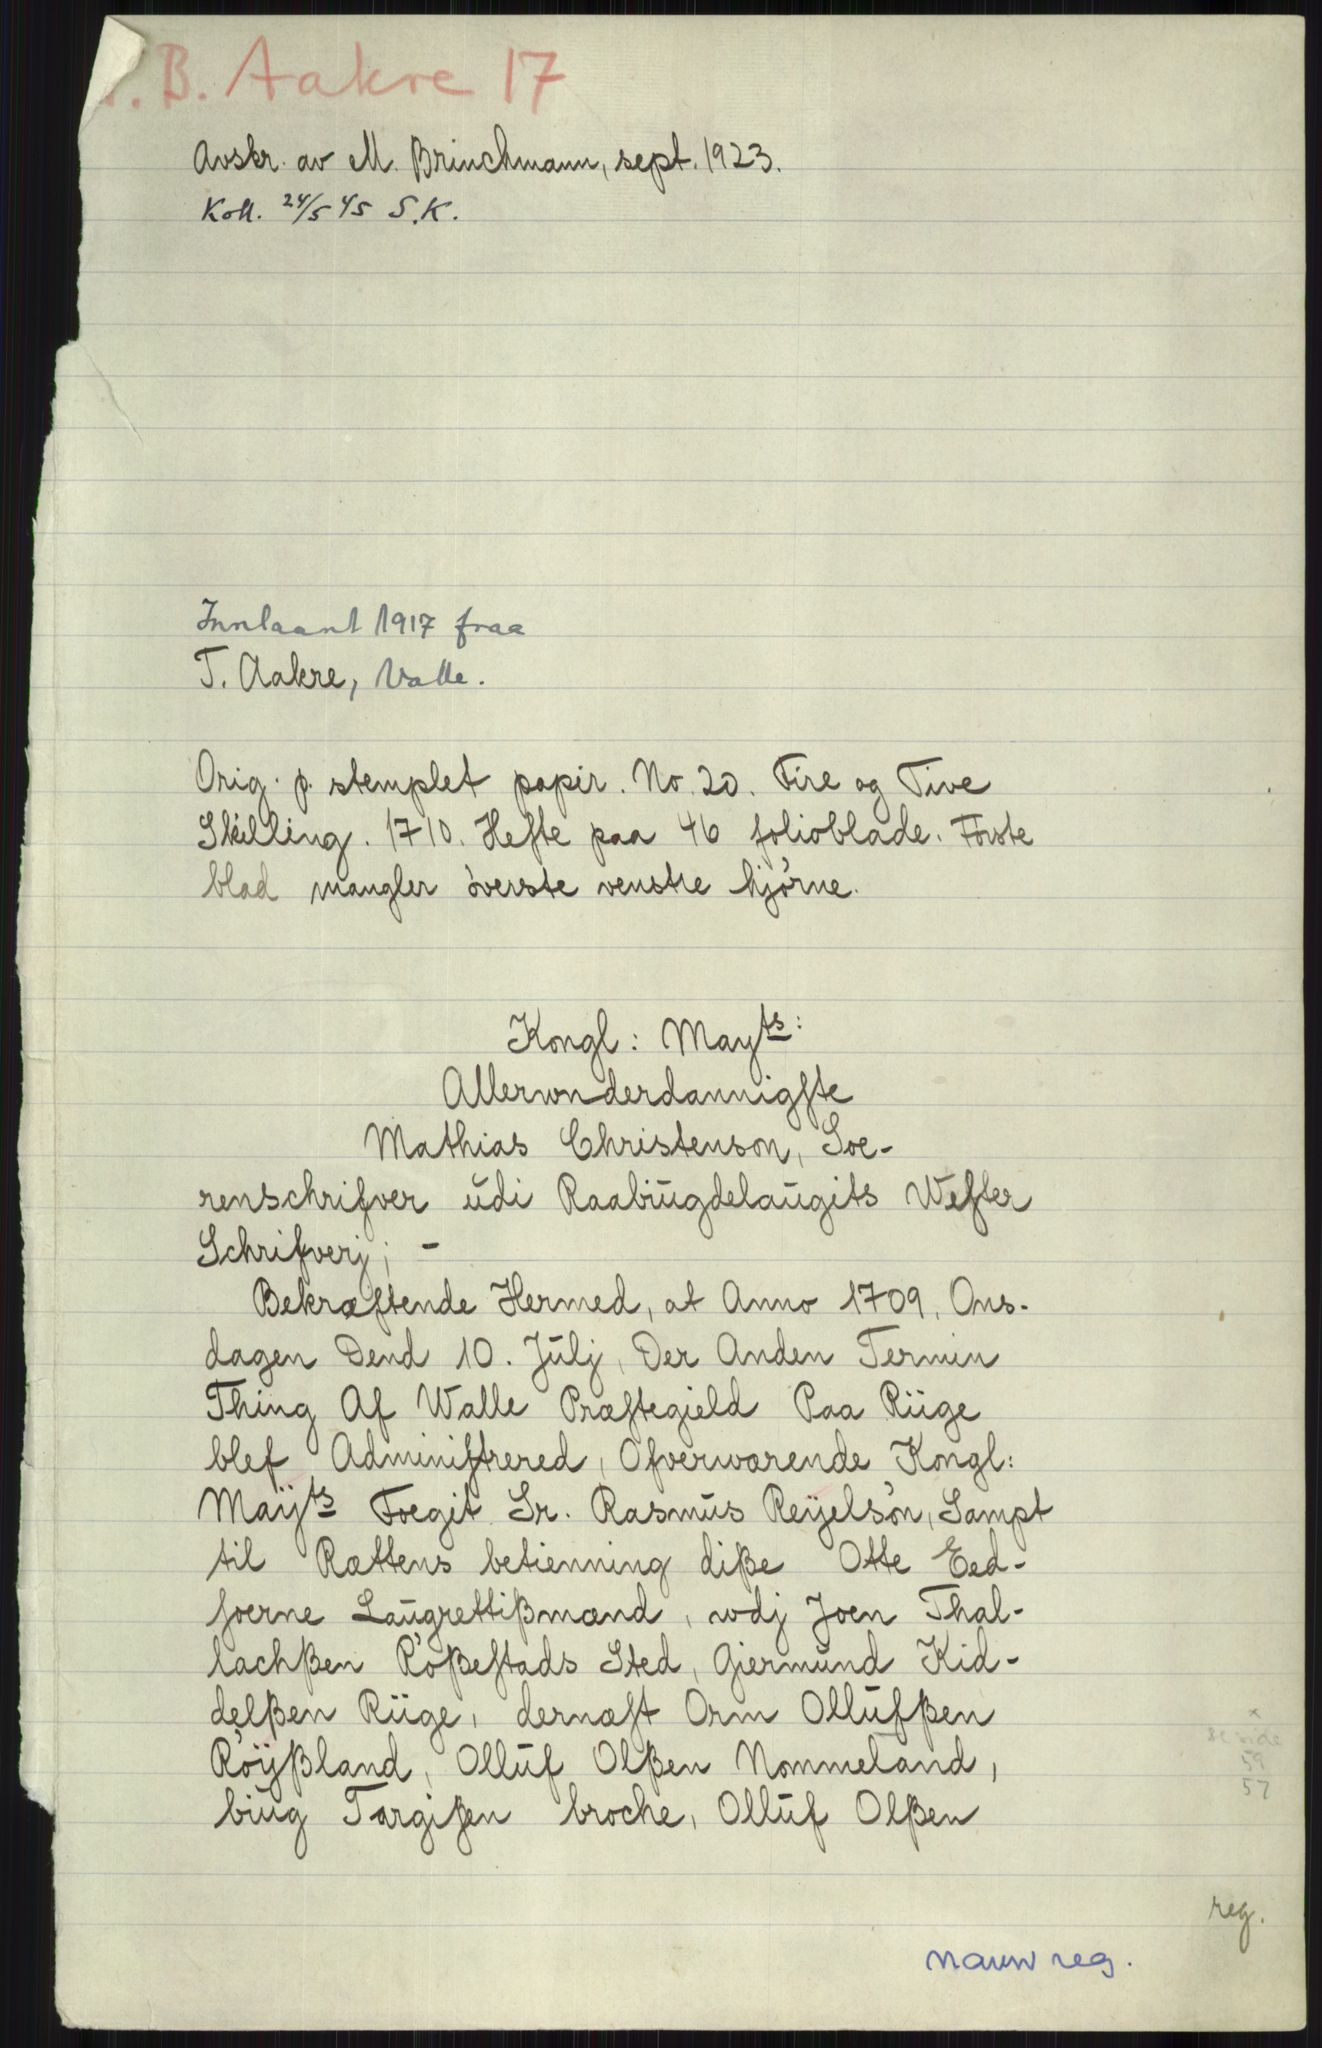 . B. Aakre 17
Avskr. av M. Brinchmann, sept. 1923.
Koll. 24/5 45 S.K.
Innlaant 1917 fraa
T. Aakre, Valle.
Orig. p. stemplet papir. No. 20. Fire og Tive
Skilling. 1710. Hefte paa 46 folioblade. Første
blad mangler øverste venstre hjørne.
Kongl: Mayts:
Allerwnderdannigste
Mathias Christenson, Soe-
renschrifver udi Raabiugdelaugits Wester
Schrifverj; -
Bekræftende Hermed, at Anno 1709, Ons-
dagen Dend 10. Julj, Der Anden Termin
Thing Af Walle Præstegield Paa Riige
blef Administrered, Ofverwærende Kongl:
Maÿts Foegit Sr. Rasmus Reÿelsøn, Sampt
til Rættens betienning diße Otte Eed-
soerne Laugrettißmænd, wdj Joen Thal-
lachßen Rößestads Sted, Giermund Kid-
delßen Riige, dernæst Orm Ollufßen
Röÿßland, Olluf Olßen Nommeland,
biug Targißen broche, Olluf Olßen
x
59
57
reg.
navnreg.